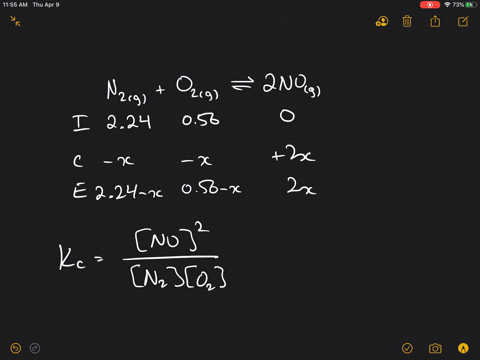 11:55 AM Thu Apr 9
73%
N₂(g) + O₂(g) ⇌ 2NO(g)
I 2.24 0.56 0
C -x -x +2x
E 2.24-x 0.56-x 2x
Kc = [NO]² / [N₂][O₂]